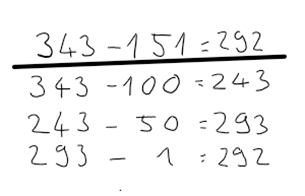 343 - 151 = 292
343 - 100 = 243
243 - 50 = 293
293 - 1 = 292